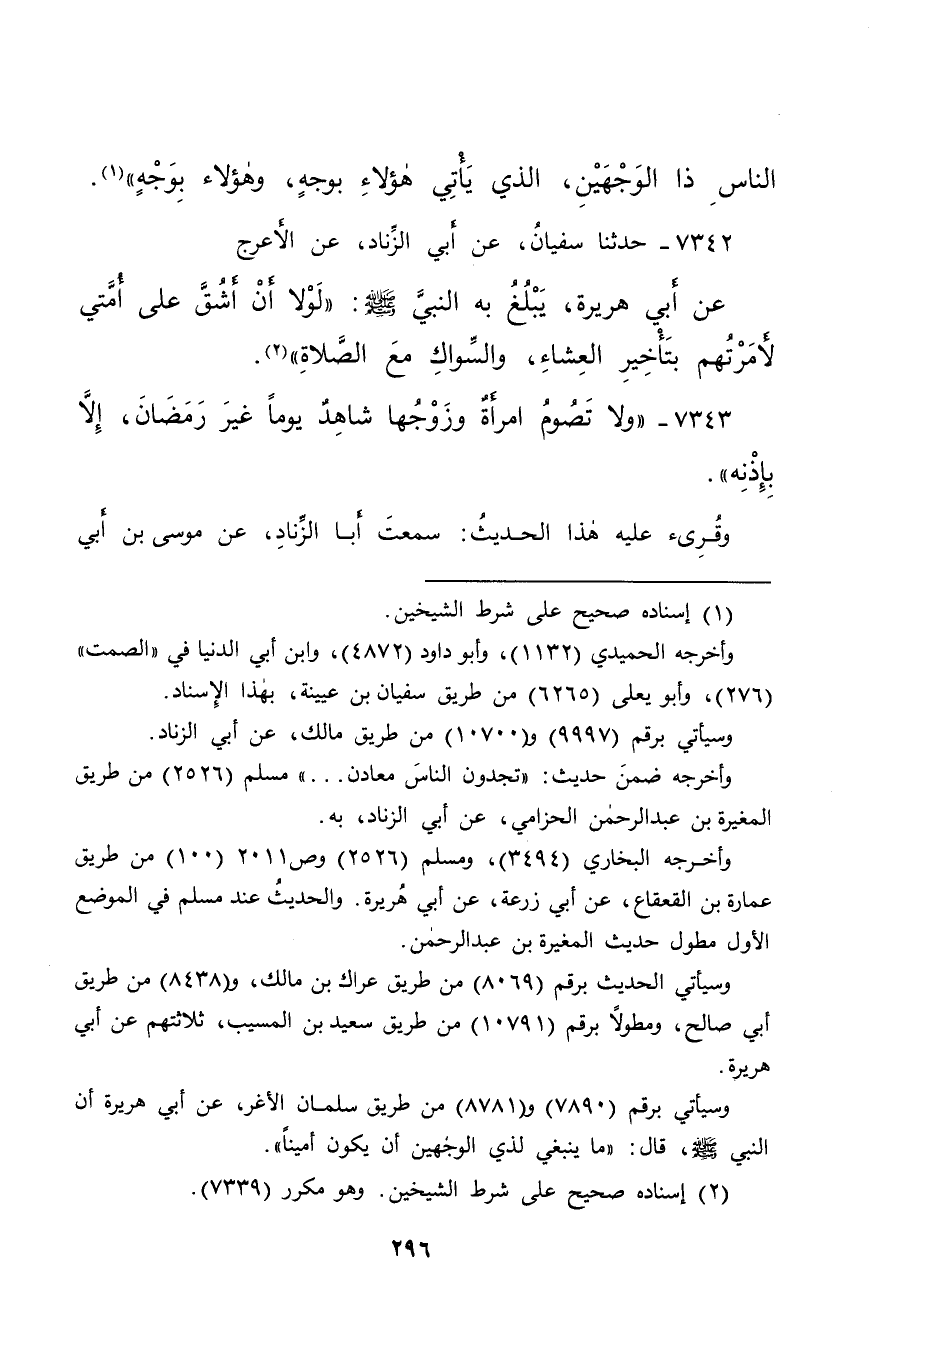 الناسِ ذا الوَجْهَيْنِ، الذي يَأْتِي هٰؤلاءِ بوجهٍ، وهٰؤلاء بِوَجْهٍ»(١).
٧٣٤٢ـ حدثنا سفيانُ، عن أَبي الزِّناد، عن الأَعرج
عن أَبي هريرة، يَبْلُغُ به النبيَّ ﷺ: «لَوْلا أَنْ أَشُقَّ على أُمَّتي
لأَمَرْتُهم بتَأْخِيرِ العِشاءِ، والسِّواكِ معَ الصَّلاةِ»(٢).
٧٣٤٣ـ «ولا تَصُومُ امرأَةٌ وزَوْجُها شاهِدٌ يوماً غيرَ رَمَضَانَ، إِلَّا
بِإِذْنِه».
وقُرِىء عليه هٰذا الحديثُ: سمعتَ أَبا الزِّنادِ، عن موسى بن أَبي
(١) إسناده صحيح على شرط الشيخين.
وأخرجه الحميدي (١١٣٢)، وأبو داود (٤٨٧٢)، وابن أبي الدنيا في «الصمت»
(٢٧٦)، وأبو يعلى (٦٢٦٥) من طريق سفيان بن عيينة، بهٰذا الإِسناد.
وسيأتي برقم (٩٩٩٧) و(١٠٧٠٠) من طريق مالك، عن أبي الزناد.
وأخرجه ضمنَ حديث: «تجدون الناسَ معادن...» مسلم (٢٥٢٦) من طريق
المغيرة بن عبدالرحمٰن الحزامي، عن أبي الزناد، به.
وأخرجه البخاري (٣٤٩٤)، ومسلم (٢٥٢٦) وص٢٠١١ (١٠٠) من طريق
عمارة بن القعقاع، عن أبي زرعة، عن أبي هُريرة. والحديثُ عند مسلم في الموضع
الأول مطول حديث المغيرة بن عبدالرحمٰن.
وسيأتي الحديث برقم (٨٠٦٩) من طريق عراك بن مالك، و(٨٤٣٨) من طريق
أبي صالح، ومطولًا برقم (١٠٧٩١) من طريق سعيد بن المسيب، ثلاثتهم عن أبي
هريرة.
وسيأتي برقم (٧٨٩٠) و(٨٧٨١) من طريق سلمان الأغر، عن أبي هريرة أن
النبي ﷺ، قال: «ما ينبغي لذي الوجهين أن يكون أميناً».
(٢) إسناده صحيح على شرط الشيخين. وهو مكرر (٧٣٣٩).
٢٩٦